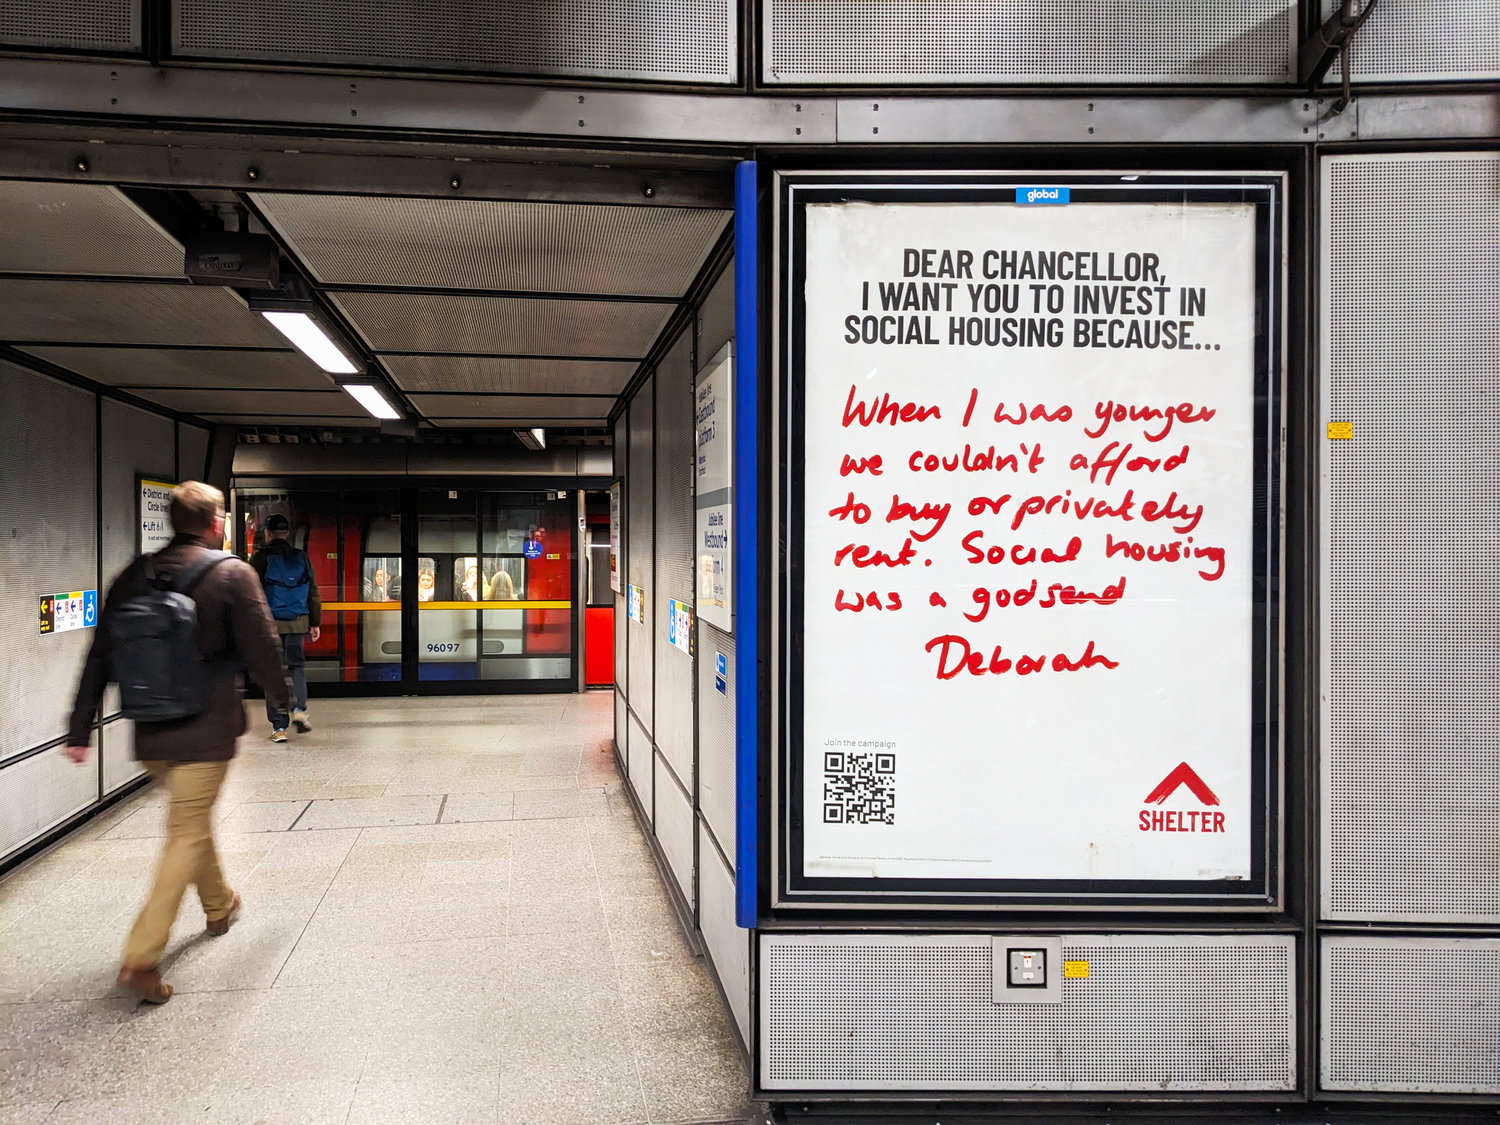 global
DEAR CHANCELLOR,
I WANT YOU TO INVEST IN
SOCIAL HOUSING BECAUSE...
When I was younger
we couldn't afford
to buy or privately
rent. Social housing
was a godsend
Deborah
Join the campaign
SHELTER
District and
Circle lines
Lift
96097
Jubilee line
Eastbound
Platform 3
Jubilee line
Westbound